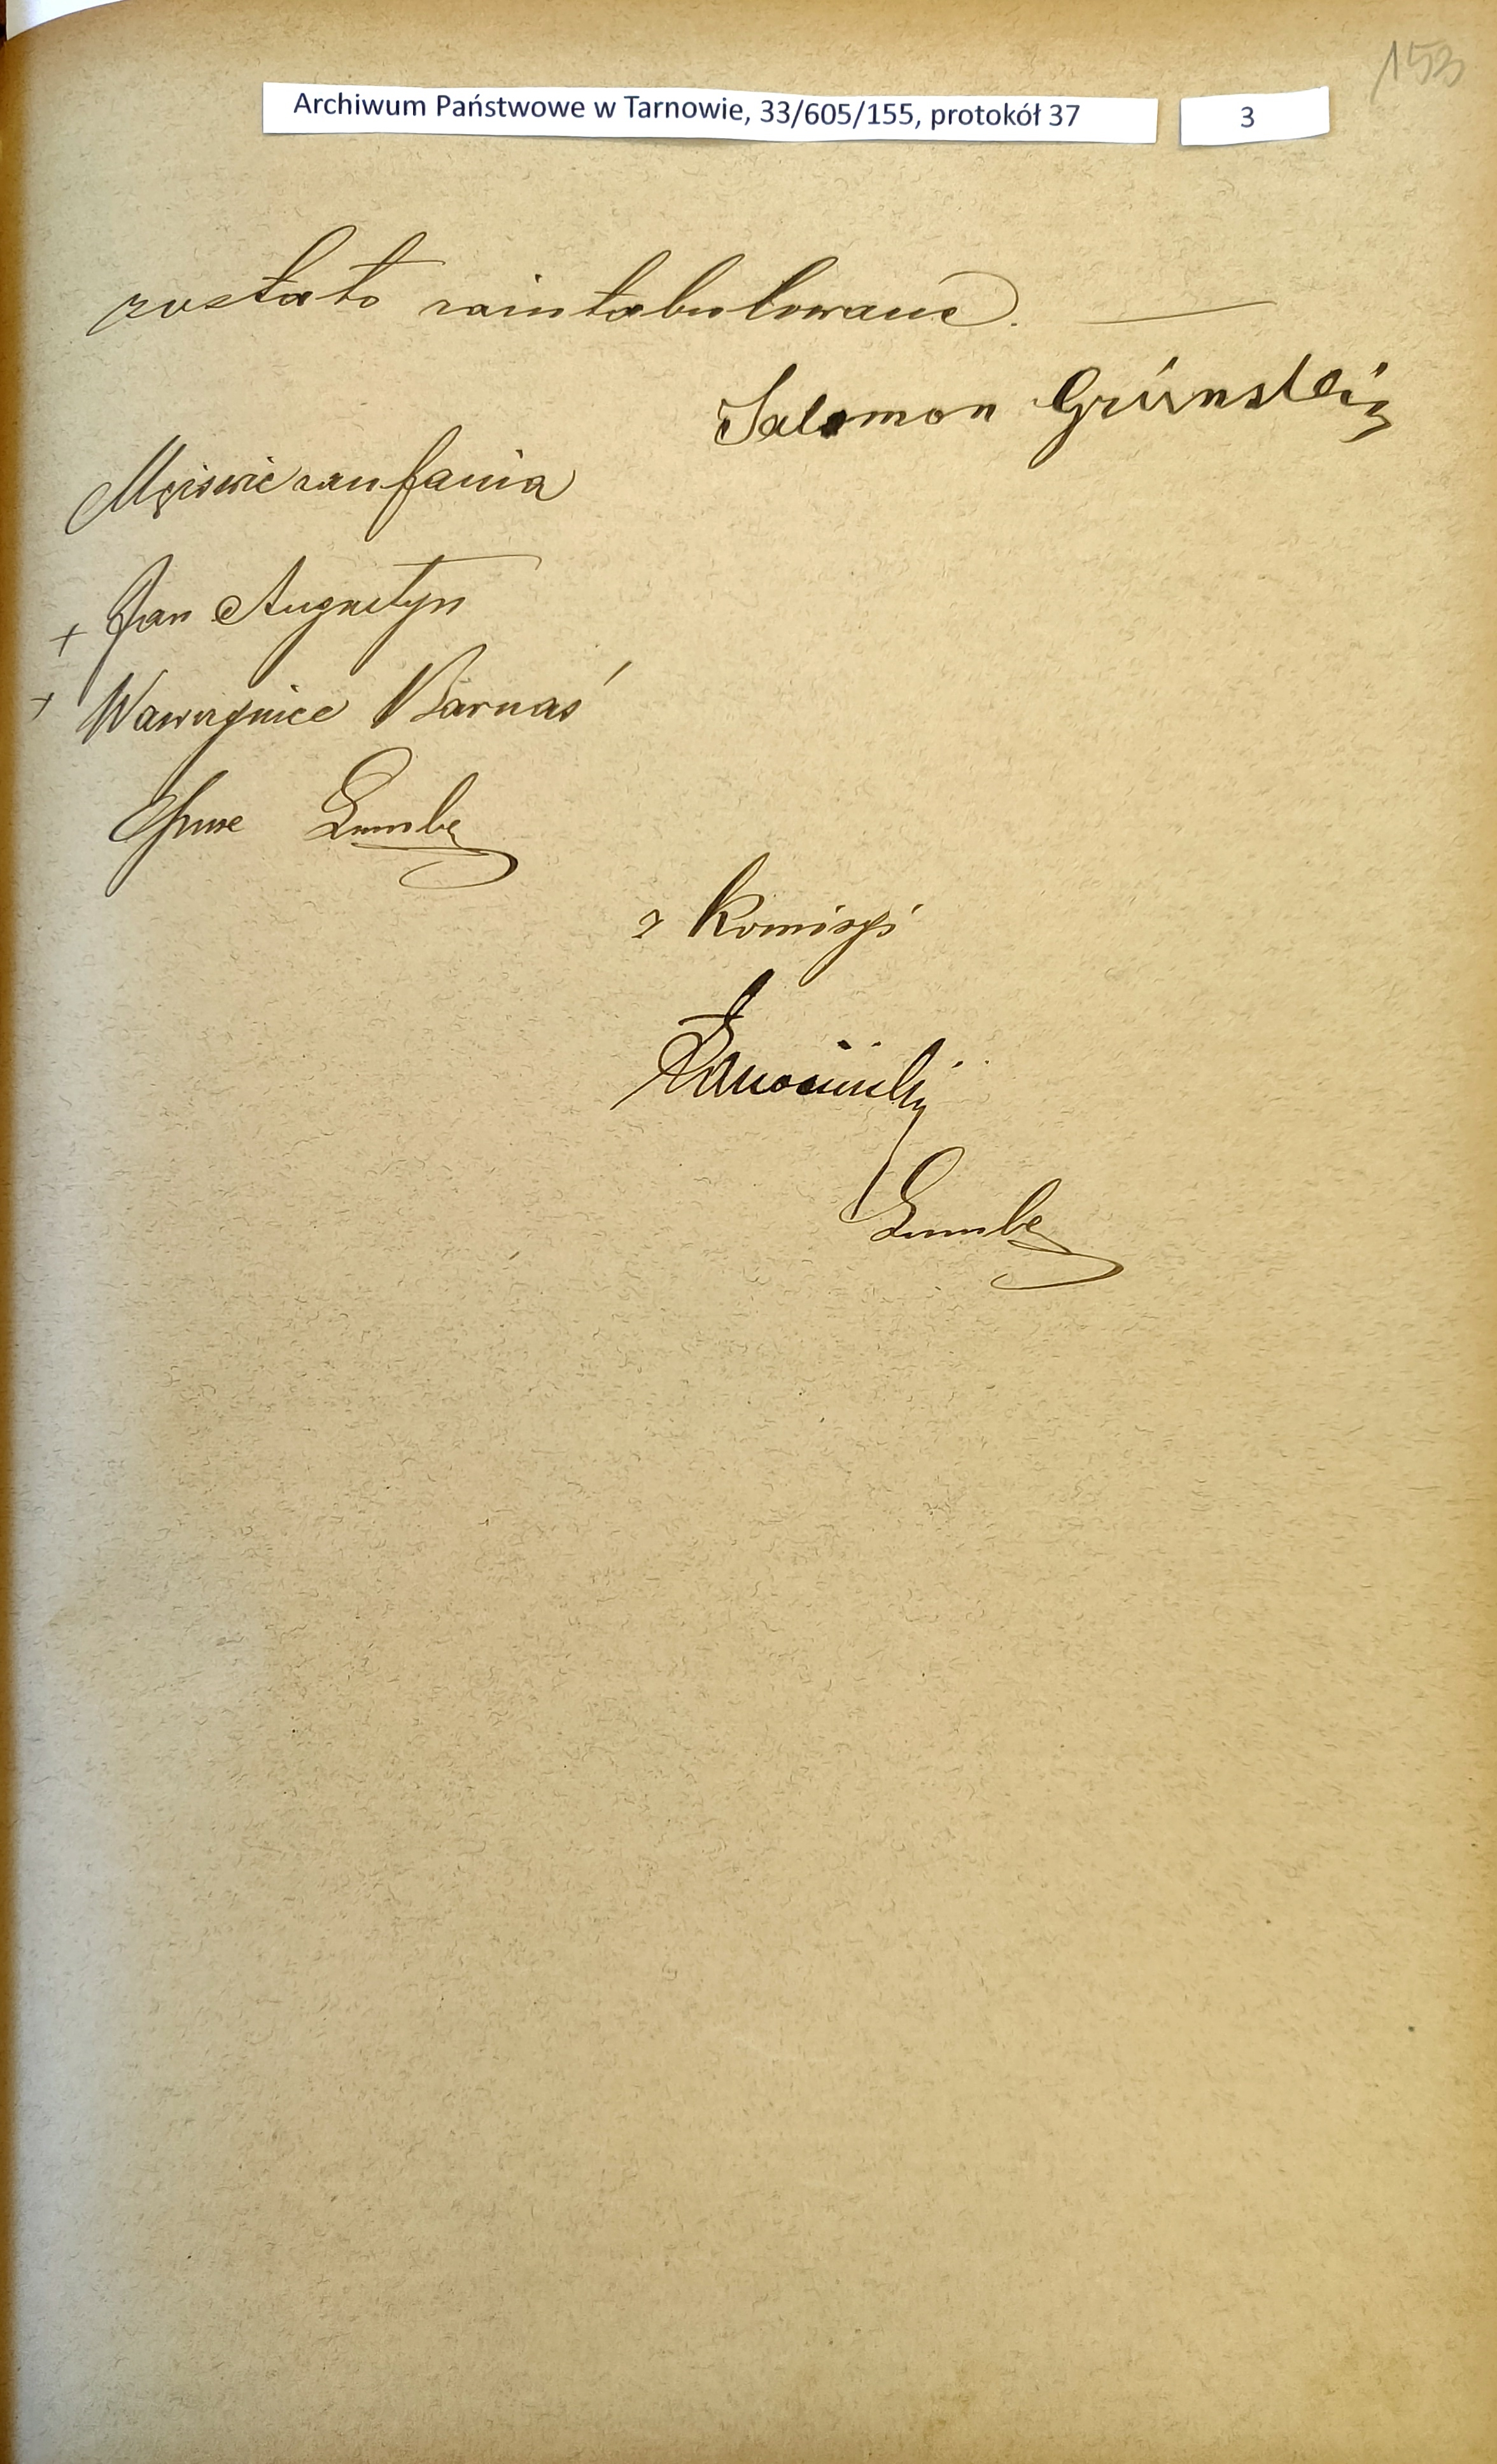 153
Archiwum Państwowe w Tarnowie, 33/605/155, protokół 37
3
zostało zaintabulowane.
Salomon Grünstein
Mężowie zaufania
+ Jan Augustyn
+ Wawrzyniec Barnaś
z Komisyi